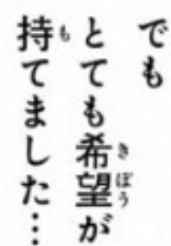 でも
とても希望が
持てました…